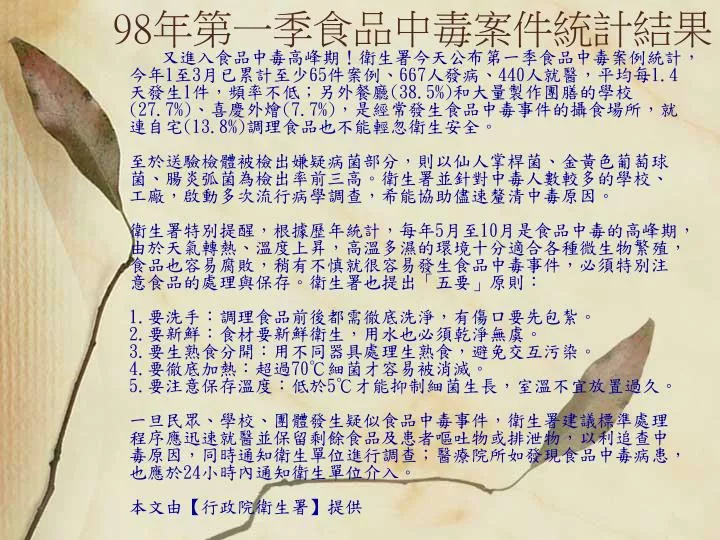 98年第一季食品中毒案件統計結果
又進入食品中毒高峰期！衛生署今天公布第一季食品中毒案例統計，
今年1至3月已累計至少65件案例、667人發病、440人就醫，平均每1.4
天發生1件，頻率不低；另外餐廳(38.5%)和大量製作團膳的學校
(27.7%)、喜慶外燴(7.7%)，是經常發生食品中毒事件的攝食場所，就
連自宅(13.8%)調理食品也不能輕忽衛生安全。
至於送驗檢體被檢出嫌疑病菌部分，則以仙人掌桿菌、金黃色葡萄球
菌、腸炎弧菌為檢出率前三高。衛生署並針對中毒人數較多的學校、
工廠，啟動多次流行病學調查，希能協助儘速釐清中毒原因。
衛生署特別提醒，根據歷年統計，每年5月至10月是食品中毒的高峰期，
由於天氣轉熱、溫度上昇，高溫多濕的環境十分適合各種微生物繁殖，
食品也容易腐敗，稍有不慎就很容易發生食品中毒事件，必須特別注
意食品的處理與保存。衛生署也提出「五要」原則：
1.要洗手：調理食品前後都需徹底洗淨，有傷口要先包紮。
2.要新鮮：食材要新鮮衛生，用水也必須乾淨無虞。
3.要生熟食分開：用不同器具處理生熟食，避免交互污染。
4.要徹底加熱：超過70℃細菌才容易被消滅。
5.要注意保存溫度：低於5℃才能抑制細菌生長，室溫不宜放置過久。
一旦民眾、學校、團體發生疑似食品中毒事件，衛生署建議標準處理
程序應迅速就醫並保留剩餘食品及患者嘔吐物或排泄物，以利追查中
毒原因，同時通知衛生單位進行調查；醫療院所如發現食品中毒病患，
也應於24小時內通知衛生單位介入。
本文由【行政院衛生署】提供